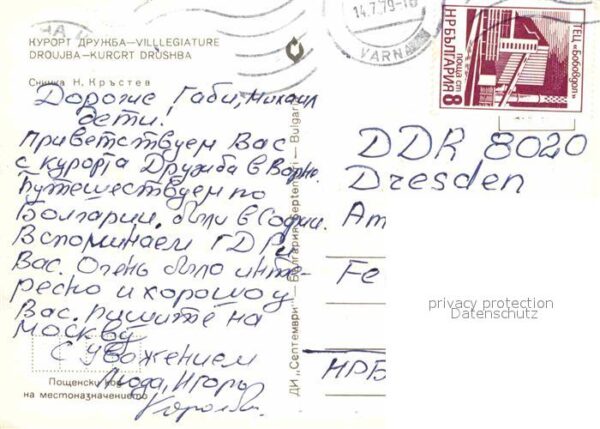 14.7.79-18
VARNA
КУРОРТ ДРУЖБА—VILLLEGIATURE
DROUJBA—KURORT DRUSHBA
Снимка Н. Кръстев
Дорогие Габи, Михаил
дети!
Приветствуем Вас
с курорта Дружба в Варне.
Путешествуем по
Болгарии, были в Софии.
Вспоминаем ГДР и
Вас. Очень было инте-
ресно и хорошо у
Вас. Пишите на
Москву
С уважением
Люда, Игорь
Пощенски код
на местоназначението
ДИ „Септември" — България Septemvri — Bulgar
НРБЪЛГАРИЯ
поща ст 8
ТЕЦ «Бобовдол»
DDR 8020
Dresden
Am
Fe
НРБ
privacy protection
Datenschutz